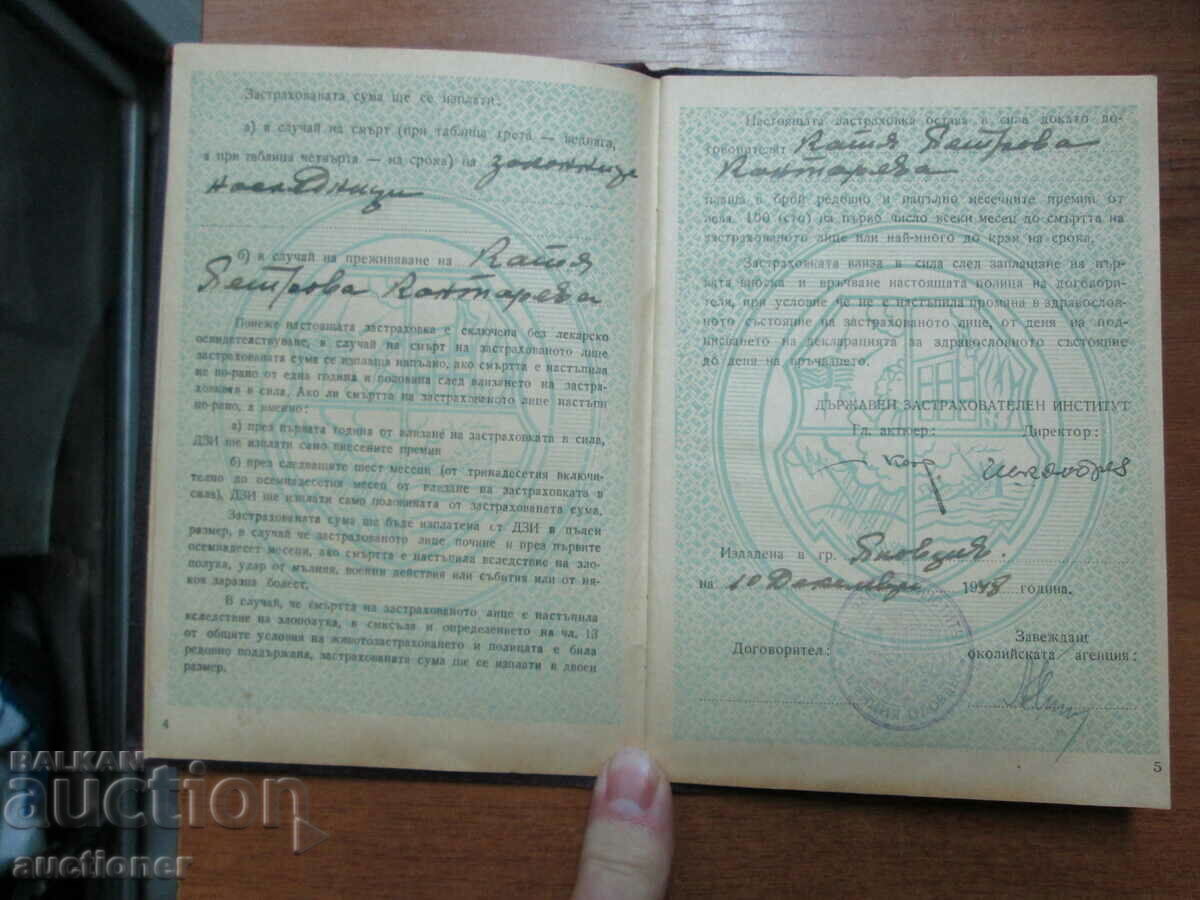 Застрахованата сума ще се изплати:
а) в случай на смърт (при таблица трета — веднага,
а при таблица четвърта — на срока) на законните
наследници
б) в случай на преживяване на Катя
Петрова Кантарева
Понеже настоящата застраховка е сключена без лекарско
освидетелствуване, в случай на смърт на застрахованото лице
застрахованата сума се изплаща напълно, ако смъртта е настъпила
не по-рано от една година и половина след влизането на застра-
ховката в сила. Ако ли смъртта на застрахованото лице настъпи
по-рано, а именно:
а) през първата година от влизане на застраховката в сила,
ДЗИ ще изплати само внесените премии
б) през следващите шест месеци (от тринадесетия включи-
телно до осемнадесетия месец от влизане на застраховката в
сила), ДЗИ ще изплати само половината от застрахованата сума.
Застрахованата сума ще бъде изплатена от ДЗИ в пълен
размер, в случай че застрахованото лице почине и през първите
осемнадесет месеци, ако смъртта е настъпила вследствие на зло-
полука, удар от мълния, военни действия или събития или от ня-
коя заразна болест.
В случай, че смъртта на застрахованото лице е настъпила
вследствие на злополука, в смисъла и определението на чл. 13
от общите условия на животозастраховането и полицата е била
редовно поддържана, застрахованата сума ще се изплати в двоен
размер.
4
Настоящата застраховка остава в сила докато до-
говорителят Катя Петрова
Кантарева
плаща в брой редовно и напълно месечните премии от
лева 100 (сто) на първо число всеки месец до смъртта на
застрахованото лице или най-много до края на срока.
Застраховката влиза в сила след заплащане на пър-
вата вноска и връчване настоящата полица на договори-
теля, при условие че не е настъпила промяна в здравослов-
ното състояние на застрахованото лице, от деня на под-
писването на декларацията за здравословното състояние
до деня на връчването.
ДЪРЖАВЕН ЗАСТРАХОВАТЕЛЕН ИНСТИТУТ
Гл. актюер: Директор:
Издадена в гр. Пловдив.
на 10 Декември 1948 година.
Договорител:
Завеждащ
околийската агенция:
5
BALKAN
auction
auctioner